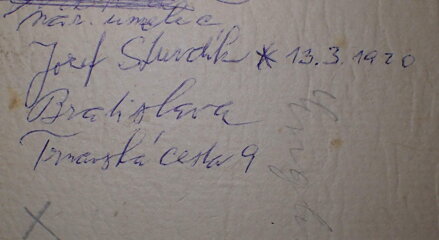 nár. umelec
Jozef Šturdík * 13.3.1920
Bratislava
Trnavská cesta 9